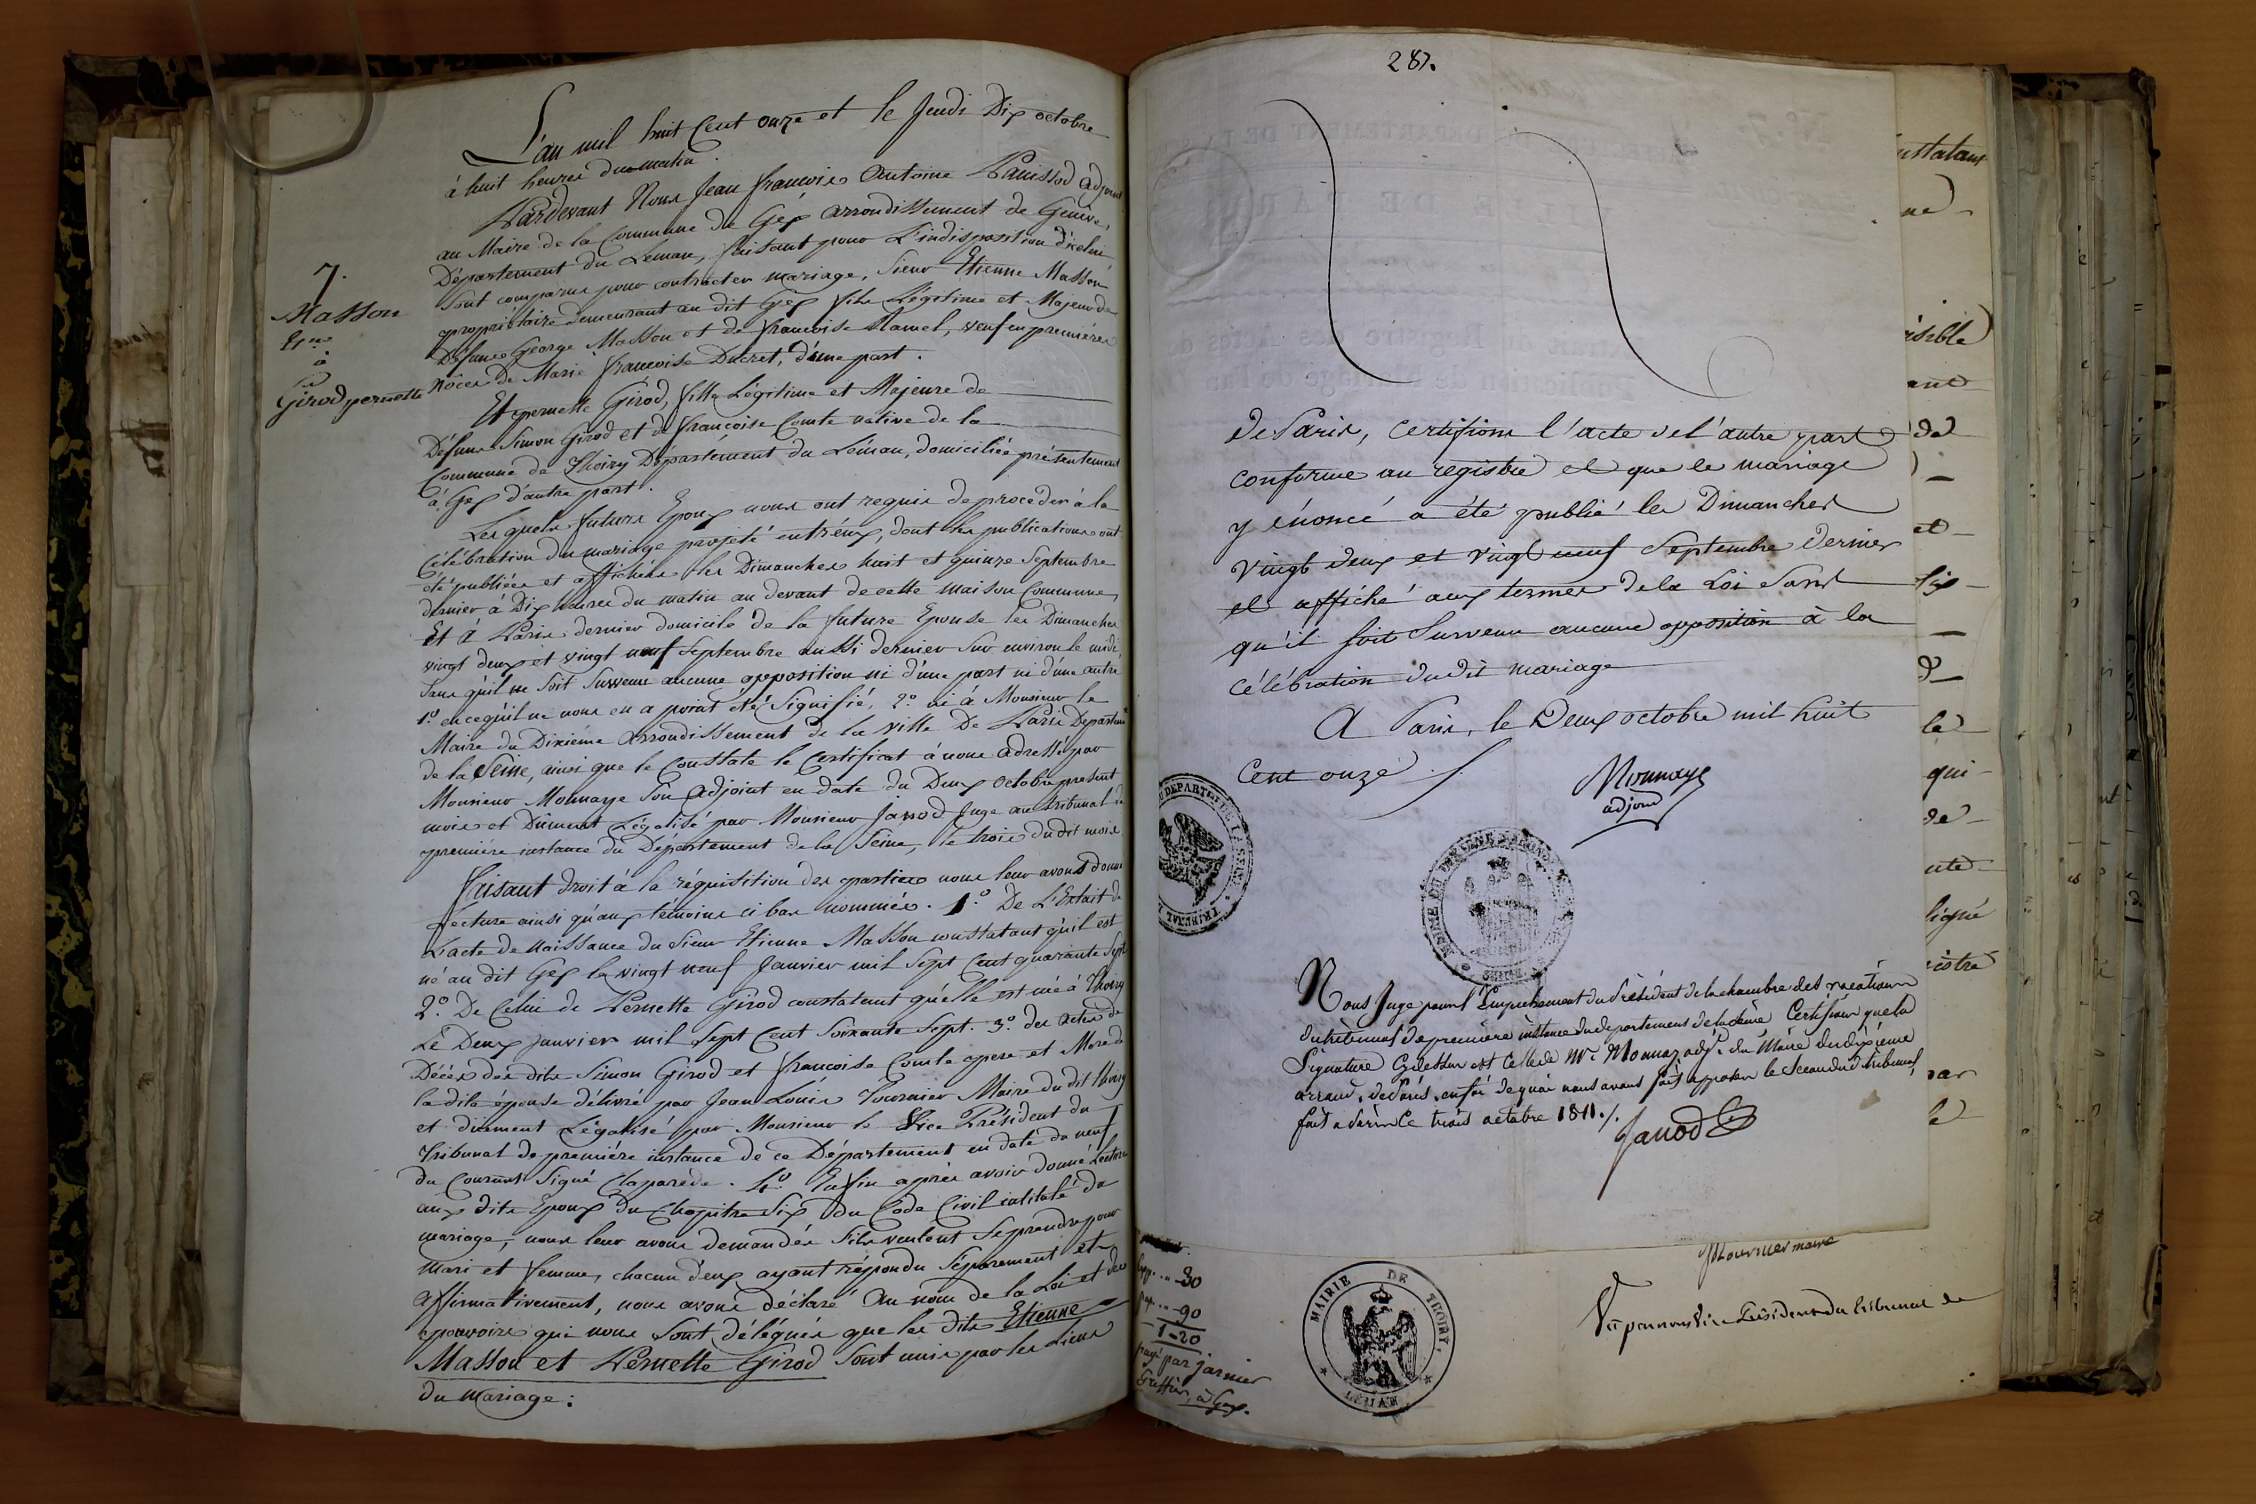 7.
Masson
Et.ne
à
Girod pernette
L'an mil huit Cent onze et le Jeudi Dix octobre
à huit heures du matin.
Pardevant Nous Jean françois Antoine Panissod adjoint
au Maire de la Commune de Gex arrondissement de Genève,
Département du Leman, faisant pour L'indisposition d'icelui
Sont comparus pour contracter mariage, Sieur Etienne Masson
propriétaire demeurant au dit Gex fils Légitime et Majeur de
Défunt George Masson et de françoise Ramel, veuf en premières
nôces de Marie françoise Ducret, d'une part.
Et pernette Girod, fille Légitime et Majeure de
Défunt Simon Girod et de françoise Comte native de la
Commune de Thoiry Département du Léman, domiciliée présentement
à Gex d'autre part.
Lesquels futurs Epoux nous ont requis de proceder à la
Célébration du mariage projeté entr'eux, dont les publications ont
été publiées et affichées les Dimanches huit et quinze Septembre
dernier à Dix heures du matin au devant de cette maison Commune,
Et à Paris dernier domicile de la future Epouse les Dimanches
vingt deux et vingt neuf Septembre aussi dernier sur environ le midi,
Sans qu'il ne soit Survenu aucune opposition ni d'une part ni d'une autre
1.º en ce qu'il ne nous en a point été Signifié, 2.º ni à Monsieur le
Maire du Dixieme arrondissement de la ville De Paris Département
de la Seine, ainsi que le Constate le Certificat à nous adressé par
Monsieur Monnaye Son adjoint en date du Deux Octobre present
mois et Dûment Légalisé par Monsieur Janod Juge au tribunal de
première instance du Département de la Seine, le trois du dit mois
faisant droit à la réquisition des parties nous leur avons donné
Lecture ainsi qu'aux témoins ci bas nommés. 1.º De L'Extrait de
L'acte de Naissance du Sieur Etienne Masson constatant qu'il est
né au dit Gex le vingt neuf Janvier mil Sept Cent quarante Sept
2.º De Celui de Pernette Girod constatant qu'elle est née à Thoiry
Le Deux janvier mil Sept Cent Soixante Sept. 3.º des actes de
Décès des dits Simon Girod et françoise Comte pere et Mere de
la dite épouse délivré par Jean Louis Tournier Maire du dit Thoiry
et duement Légalisé par Monsieur le Vice Président du
Tribunal de première instance de ce Département en date du neuf
du Courant Signé Claparède. 4.º Enfin après avoir donné Lecture
aux dits Epoux du Chapitre Six du Code Civil intitulé du
mariage, nous leur avons demandés S'ils veulent Se prendre pour
Mari et femme, chacun d'eux ayant répondu Séparement et
affirmativement, nous avons déclaré au nom de la Loi et des
pouvoirs qui nous Sont délégués que les dits Etienne
Masson et Pernette Girod Sont unis par les Liens
du Mariage:
287.
de Paris, certifions l'acte de l'autre part
conforme au registre et que le mariage
y énoncé a été publié les Dimanches
vingt deux et vingt neuf Septembre dernier
et affiché aux termes de la Loi Sans
qu'il soit Survenu aucune opposition à la
célébration dudit mariage
A Paris, le Deux octobre mil huit
Cent onze ./.
Monnaye
adjoint
Nous Juge pour l'Empechement du Président de la chambre des vacations
du tribunal de première instance du département de la Seine Certifions que la
Signature Ci dessus est celle de Mr Monnay adjt. du Maire du dixième
arrond. de Paris. en foi de quoi nous avons fait apposer le Sceau dudit tribunal
fait à Paris ce trois octobre 1811./.
Janod
30
90
1-20
payé par janier
Greffier, à Gex.
MAIRIE DE THOIRY,
LEMAN
Tournier maire
Vu par nous Vice Président du tribunal de